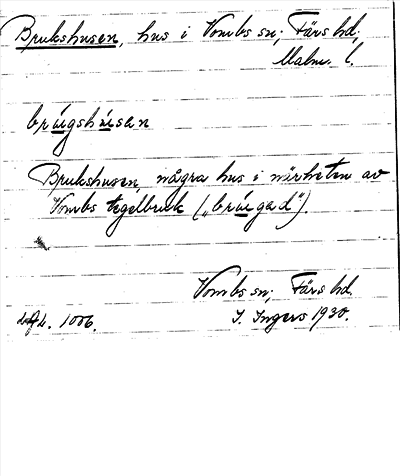 Brukshusen, hus i Vombs sn; Färs hd,
Malm. l.
brúgshúsen
Brukshusen, några hus i närheten av
Vombs tegelbruk („brúgad").
Vombs sn; Färs hd.
1006. I. Ingers 1930.